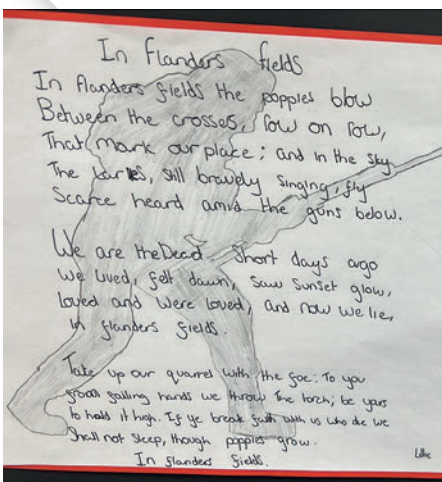 In Flanders fields
In Flanders fields the poppies blow
Between the crosses, row on row,
That mark our place; and in the sky
The larks, still bravely singing, fly
Scarce heard amid the guns below.
We are the Dead. Short days ago
We lived, felt dawn, saw sunset glow,
Loved and were loved, and now we lie,
in flanders fields.
Take up our quarrel with the foe: To you
from failing hands we throw The torch; be yours
to hold it high. If ye break faith with us who die we
Shall not sleep, though poppies grow.
In flanders fields.